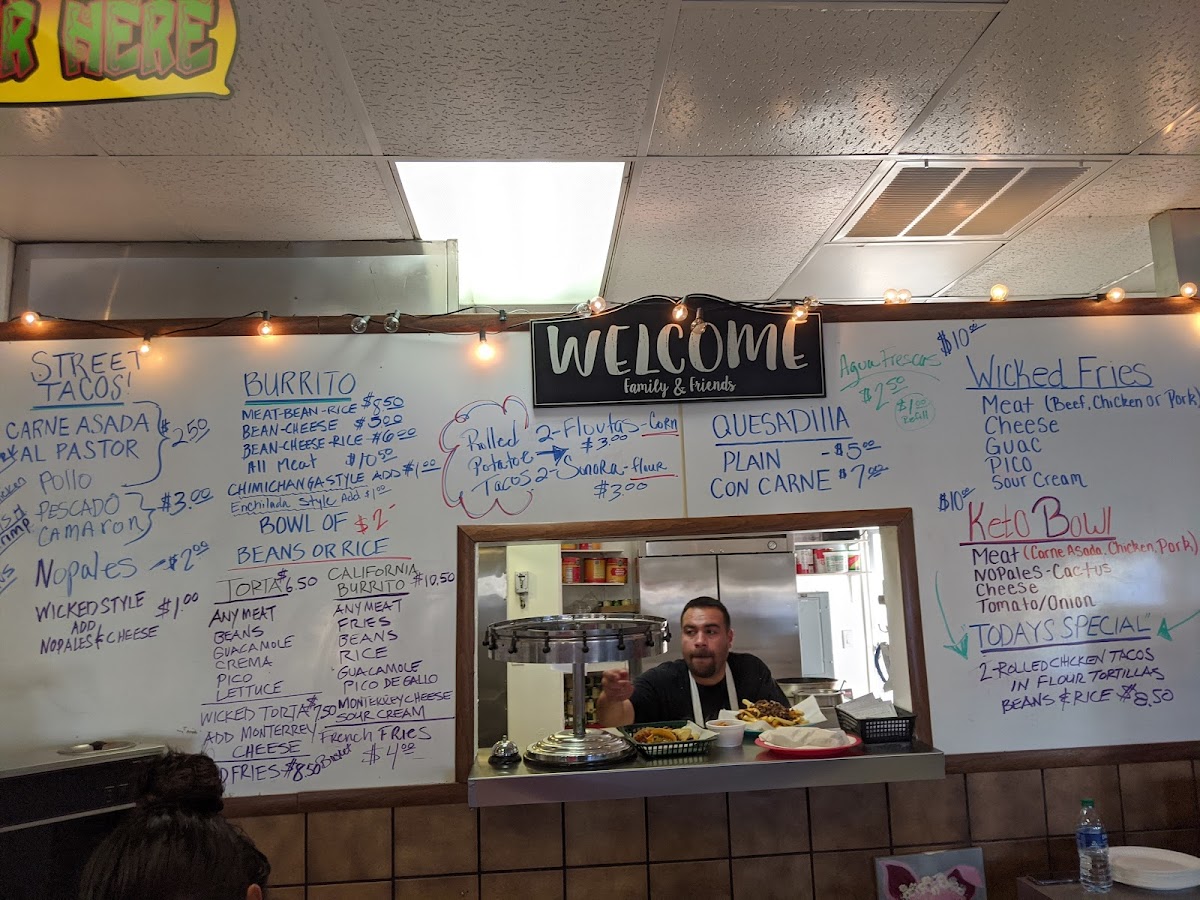 R HERE
WELCOME
Family & Friends
STREET
TACOS!
CARNE ASADA
AL PASTOR
Pollo
$2.50
PESCADO
CAMARON
$3.00
Nopales - $2.00
WICKED STYLE
ADD
NOPALES & CHEESE
$1.00
BURRITO
MEAT-BEAN-RICE $8.50
BEAN-CHEESE $5.00
BEAN-CHEESE-RICE $6.00
All Meat $10.50
CHIMICHANGA-STYLE ADD $1.00
Enchilada Style Add $1.00
BOWL OF $2-
BEANS OR RICE
TORTA $6.50
ANY MEAT
BEANS
GUACAMOLE
CREMA
PICO
LETTUCE
WICKED TORTA $7.50
ADD MONTERREY
CHEESE
D FRIES $8.50
CALIFORNIA
BURRITO $10.50
ANY MEAT
FRIES
BEANS
RICE
GUACAMOLE
PICO DE GALLO
MONTERREY CHEESE
SOUR CREAM
French FRIES
Basket $4.00
Rolled
Potatoe
Tacos
2-Flutas-Corn
$3.00
2-Sonora-flour
$3.00
QUESADILLA
PLAIN - $5.00
CON CARNE $7.00
Agua Frescas
$2.50
$1.00
Refill
$10.00
Wicked Fries
Meat (Beef, Chicken or Pork)
Cheese
Guac
Pico
Sour Cream
$10.00
Keto Bowl
Meat (Carne Asada, Chicken, Pork)
NOPales-Cactus
Cheese
Tomato/Onion
TODAYS SPECIAL"
2-ROLLED CHICKEN TACOS
IN FLOUR TORTILLAS
BEANS & RICE $8.50